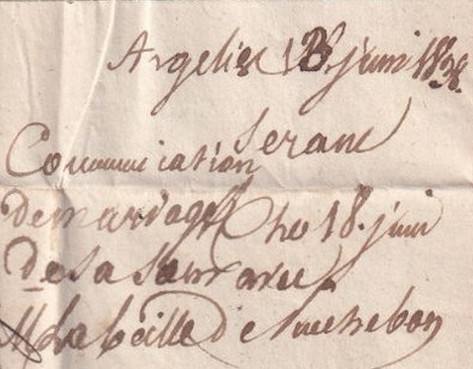 Argelies 18 juin 1838
Seranc
Communication
de mariage Rho 18. juin
de sa Sœur avec
M Labeille de